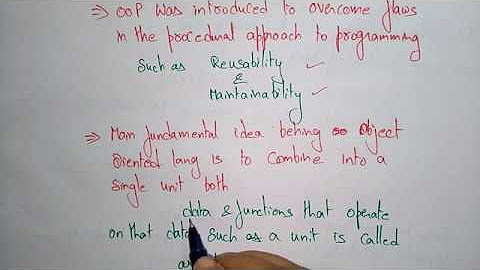 ⇒ OOP was introduced to overcome flaws
in the procedural approach to programming
Such as Reusability ✓
&
Maintainability ✓
⇒ Main fundamental idea behing Object
Oriented lang is to Combine into a
single unit both
data & functions that operate
on that data. Such as a unit is called